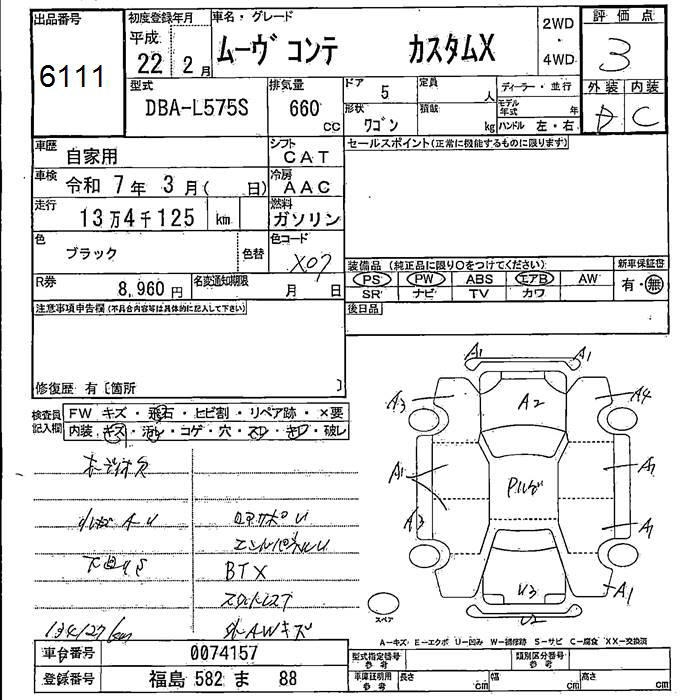 出品番号 6111
初度登録年月 平成 22年 2月
車名・グレード ムーヴ コンテ カスタムX
2WD・4WD
評価点 3
型式 DBA-L575S
排気量 660 CC
ドア 5
定員 人
形状 ワゴン
積載 kg
ディーラー・並行
モデル年式 年
ハンドル 左・右
外装 D 内装 C
車歴 自家用
シフト CAT
セールスポイント(正常に機能するものに限ります)
車検 令和 7年 3月( 日)
冷房 AAC
走行 13万4千125 km
燃料 ガソリン
色 ブラック 色替
色コード X07
装備品 (純正品に限り○をつけてください)
新車保証書 有・無
PS PW ABS エアB AW
SR ナビ TV カワ
R券 8,960 円
名変通知期限 月 日
後日品
注意事項申告欄 (不具合内容等は具体的に記入して下さい)
修復歴 有〔箇所 〕
検査員記入欄
FW キズ・飛石・ヒビ割・リペア跡・×要
内装・キズ・汚レ・コゲ・穴・スレ・キレ・破レ
下回りS
BTX
スタッドレス
外AWキズ
134127km
A1 A1
A3 A2 A4
A1
A3
A1
A1
A1
U3
U2
スペア
A―キズ E―エクボ U―凹み W―補修跡 S―サビ C―腐食 XX―交換済
車台番号 0074157
登録番号 福島 582 ま 88
型式指定番号 参考
類別区分番号 参考
車庫証明用 参考 長さ cm 幅 cm 高さ cm